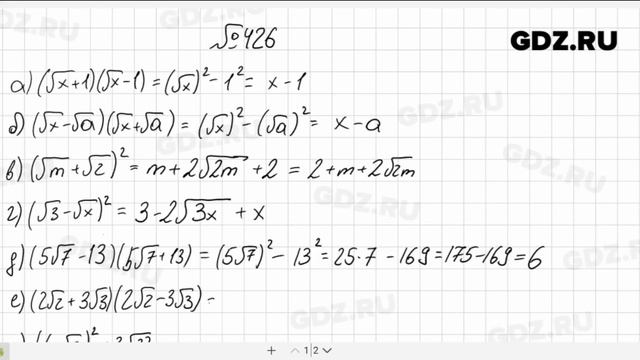 №426
GDZ.RU
а) (√x+1)(√x-1) = (√x)² - 1² = x - 1
б) (√x-√a)(√x+√a) = (√x)² - (√a)² = x - a
в) (√m+√2)² = m + 2√2m + 2 = 2 + m + 2√2m
г) (√3-√x)² = 3 - 2√3x + x
д) (5√7-13)(5√7+13) = (5√7)² - 13² = 25·7 - 169 = 175-169 = 6
е) (2√2+3√3)(2√2-3√3) -
1 2